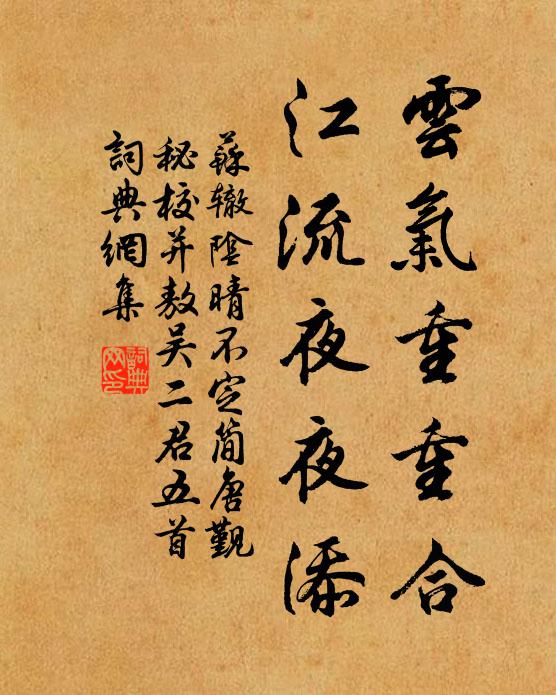 雲氣重重合
江流夜夜添
蘇轍陰晴不定簡唐覲
秘校并敖吴二君五首
詞典網集
詞典网印